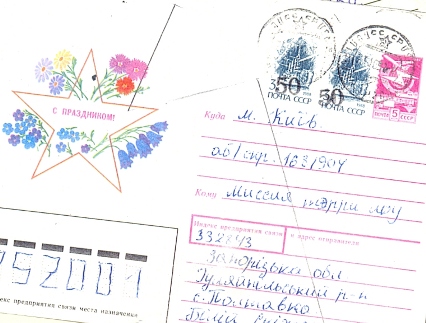 С ПРАЗДНИКОМ!
50
ПОЧТА СССР
50
ПОЧТА СССР
5
СССР
Куда м. Київ
аб/скр. 163/904
Кому Миссия терри лоу
Индекс предприятия связи и адрес отправителя
332843
Запорізька обл
Гуляйпільський р-н
с. Полтавка
252001
декс предприятия связи места назначения